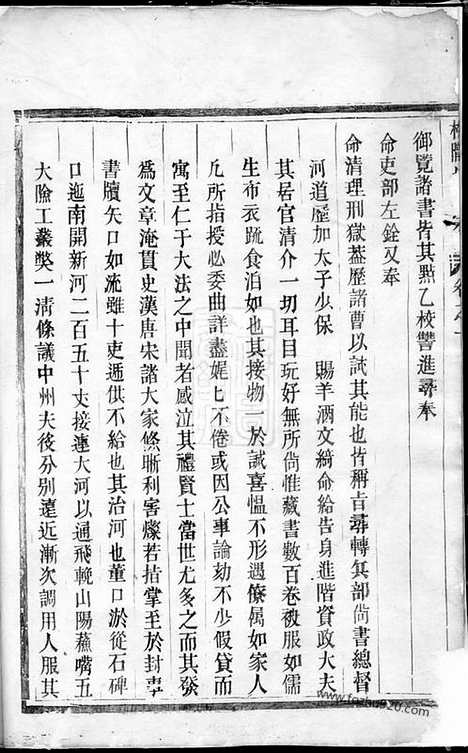 御覽諸書皆其點乙校讐進尋奉
命吏部左銓又奉
命清理刑獄蓋歷諸曹以試其能也皆稱旨尋轉兵部尚書總督
河道歷加太子少保 賜羊酒文綺命給告身進階資政大夫
其居官清介一切耳目玩好無所尙惟藏書數百卷被服如儒
生布衣蔬食泊如也其接物一於誠喜愠不形遇僚屬如家人
凢所指授必委曲詳盡娓匕不倦或因公事論劾不少假貸而
寓至仁于大法之中聞者感泣其禮賢士當世尤多之而其發
爲文章淹貫史漢唐宋諸大家條晣利害燦若指掌至於封事
書牘矢口如流雖十吏遞供不給也其治河也董口淤從石碑
口迤南開新河二百五十丈接連大河以通飛輓山陽蘓嘴五
大險工叢獘一淸條議中州夫後分別遠近漸次調用人服其
www.fozhu920.com